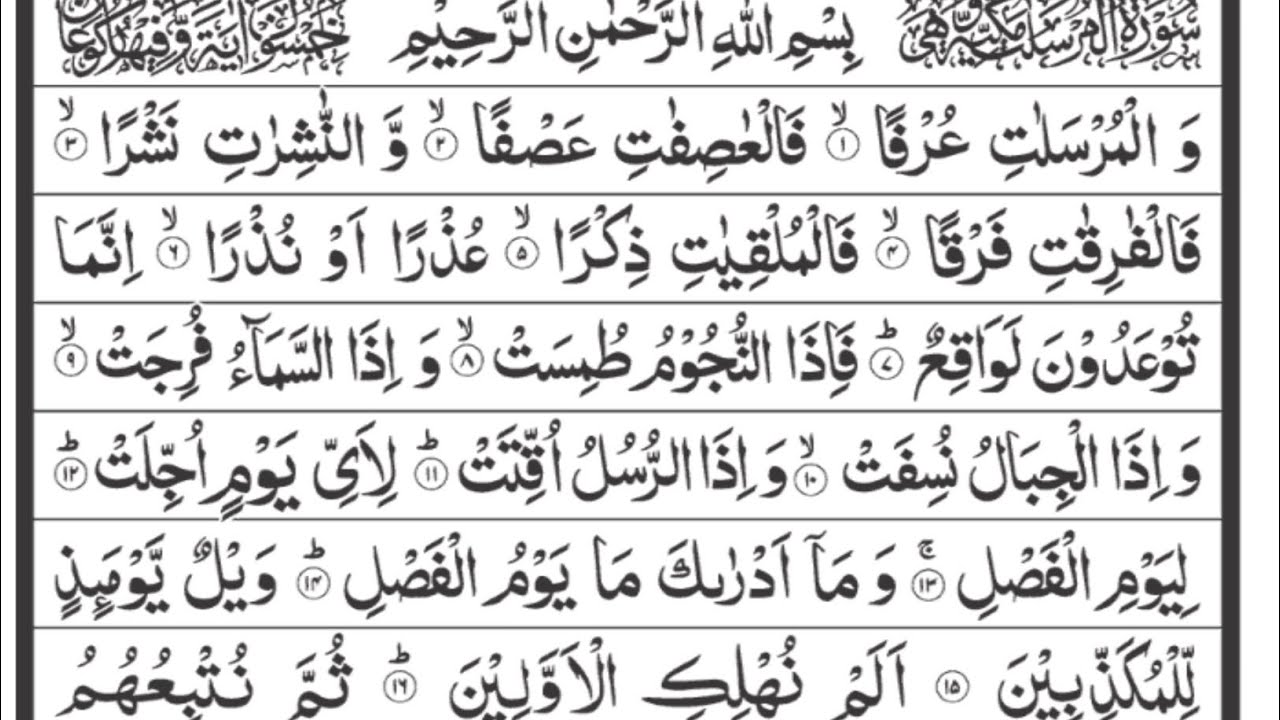 سُوْرَةُ الْمُرْسَلٰتِ مَكِّيَّةٌ وَّهِيَ بِسْمِ اللّٰهِ الرَّحْمٰنِ الرَّحِيْمِ خَمْسُوْنَ اٰيَةً وَّفِيْهَا رُكُوْعَانِ
وَ الْمُرْسَلٰتِ عُرْفًا ۙ﴿۱﴾ فَالْعٰصِفٰتِ عَصْفًا ۙ﴿۲﴾ وَّ النّٰشِرٰتِ نَشْرًا ۙ﴿۳﴾
فَالْفٰرِقٰتِ فَرْقًا ۙ﴿۴﴾ فَالْمُلْقِيٰتِ ذِكْرًا ۙ﴿۵﴾ عُذْرًا اَوْ نُذْرًا ۙ﴿۶﴾ اِنَّمَا
تُوْعَدُوْنَ لَوَاقِعٌ ؕ﴿۷﴾ فَاِذَا النُّجُوْمُ طُمِسَتْ ۙ﴿۸﴾ وَ اِذَا السَّمَآءُ فُرِجَتْ ۙ﴿۹﴾
وَ اِذَا الْجِبَالُ نُسِفَتْ ۙ﴿۱۰﴾ وَ اِذَا الرُّسُلُ اُقِّتَتْ ؕ﴿۱۱﴾ لِاَيِّ يَوْمٍ اُجِّلَتْ ؕ﴿۱۲﴾
لِيَوْمِ الْفَصْلِ ۚ﴿۱۳﴾ وَ مَاۤ اَدْرٰىكَ مَا يَوْمُ الْفَصْلِ ؕ﴿۱۴﴾ وَيْلٌ يَّوْمَىِٕذٍ
لِّلْمُكَذِّبِيْنَ ﴿۱۵﴾ اَلَمْ نُهْلِكِ الْاَوَّلِيْنَ ؕ﴿۱۶﴾ ثُمَّ نُتْبِعُهُمُ